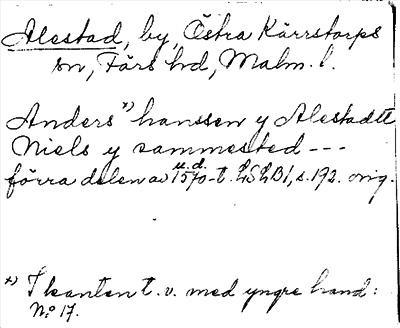 Alestad, by, Östra Kärrstorps
sn, Färs hd, Malm. l.
Anders *) hanssen y Alestadtt
Niels y sammested ---
förra delen av 1570-t. LSLB1, s. 192. orig.
u.d.
*) I kanten t. v. med yngre hand:
No 17.